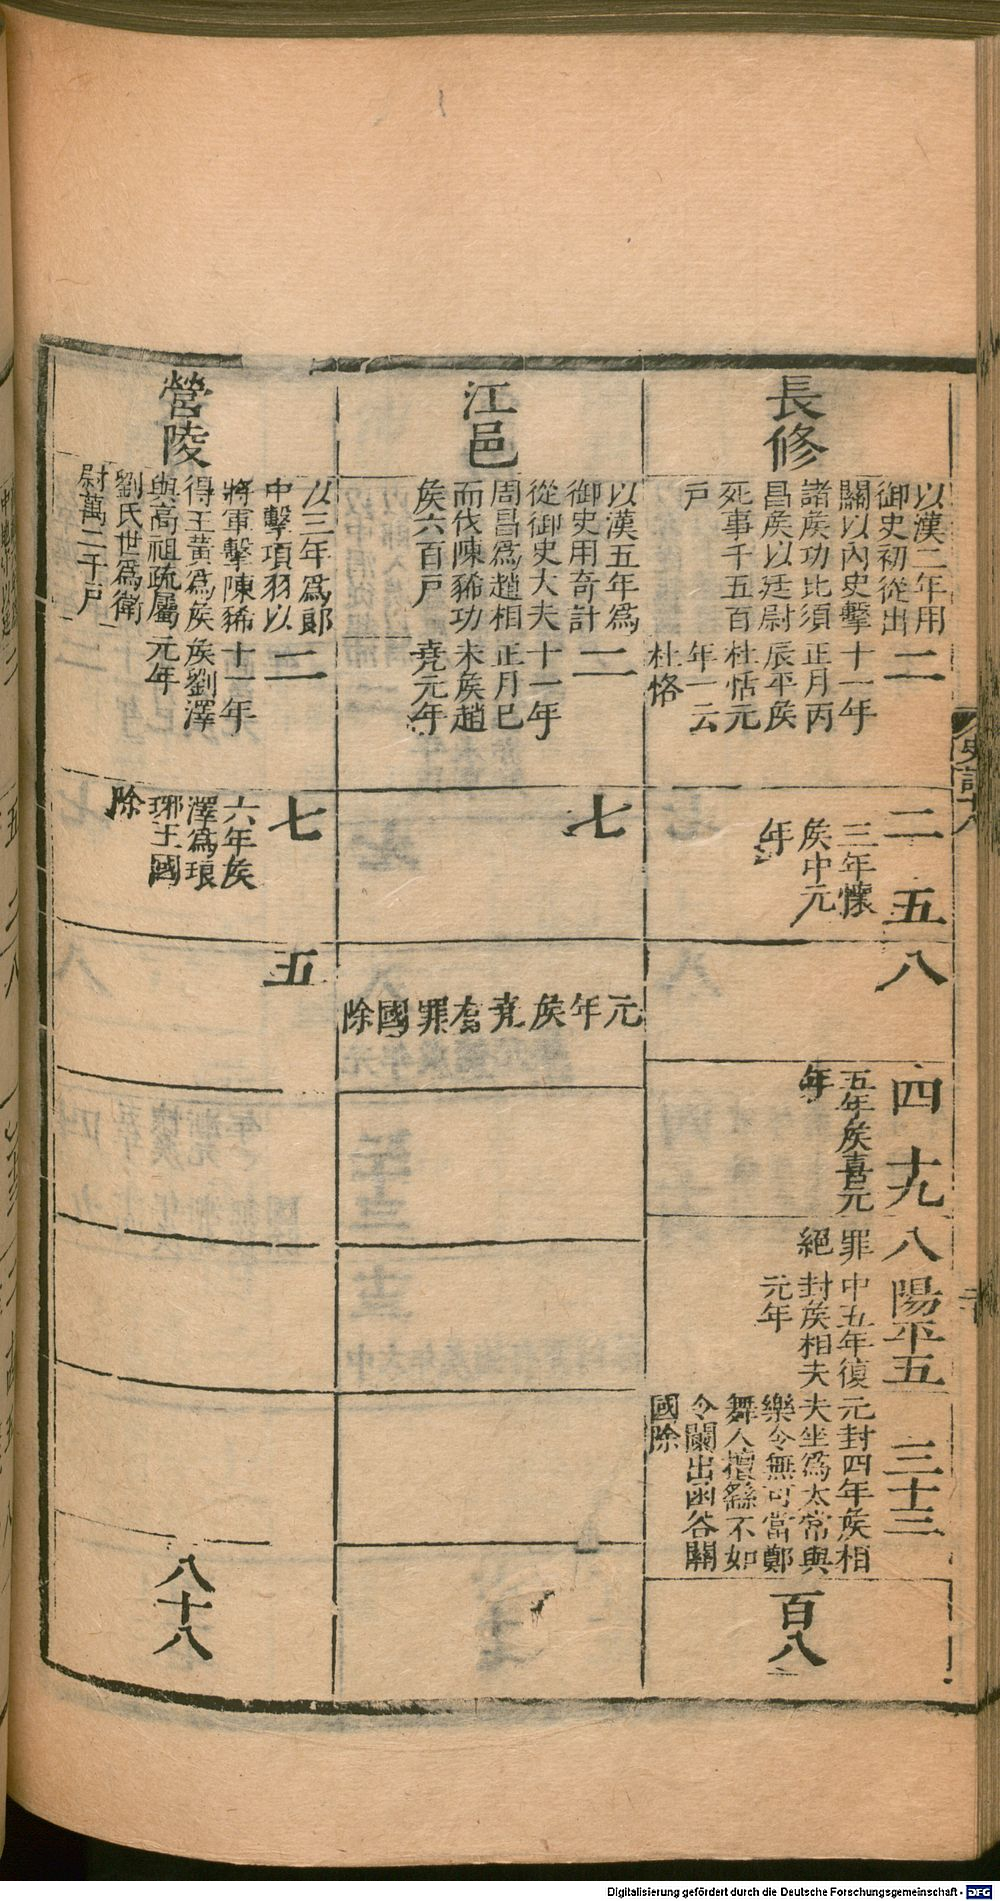 長修
以漢二年用
御史初從出
關以內史擊
諸矦功比須
昌矦以廷尉
死事千五百
戸
二
十一年
正月丙
辰平矦
杜恬元
年一云
杜恪
二
三年懷
矦中元
年
五
八
四
五年矦喜元
年
十九
八
罪
絕
陽平五
中五年復
封矦相夫
元年
三十三
元封四年矦相
夫坐為太常與
樂令無可當鄭
舞人擅繇不如
令闌出函谷關
國除
百八
江邑
以漢五年爲
御史用奇計
從御史大夫
周昌爲趙相
而伐陳豨功
矦六百戸
二
十一年
正月巳
未矦趙
堯元年
七
元年矦堯有罪國除
營陵
以三年爲郎
中擊項羽以
將軍擊陳豨
得王黃爲矦
與高祖疏屬
劉氏世爲衛
尉萬二千戸
二
十一年
矦劉澤
元年
七
六年矦
澤爲琅
琊王國
除
五
八十八
史記十八
Digitalisierung gefördert durch die Deutsche Forschungsgemeinschaft - DFG